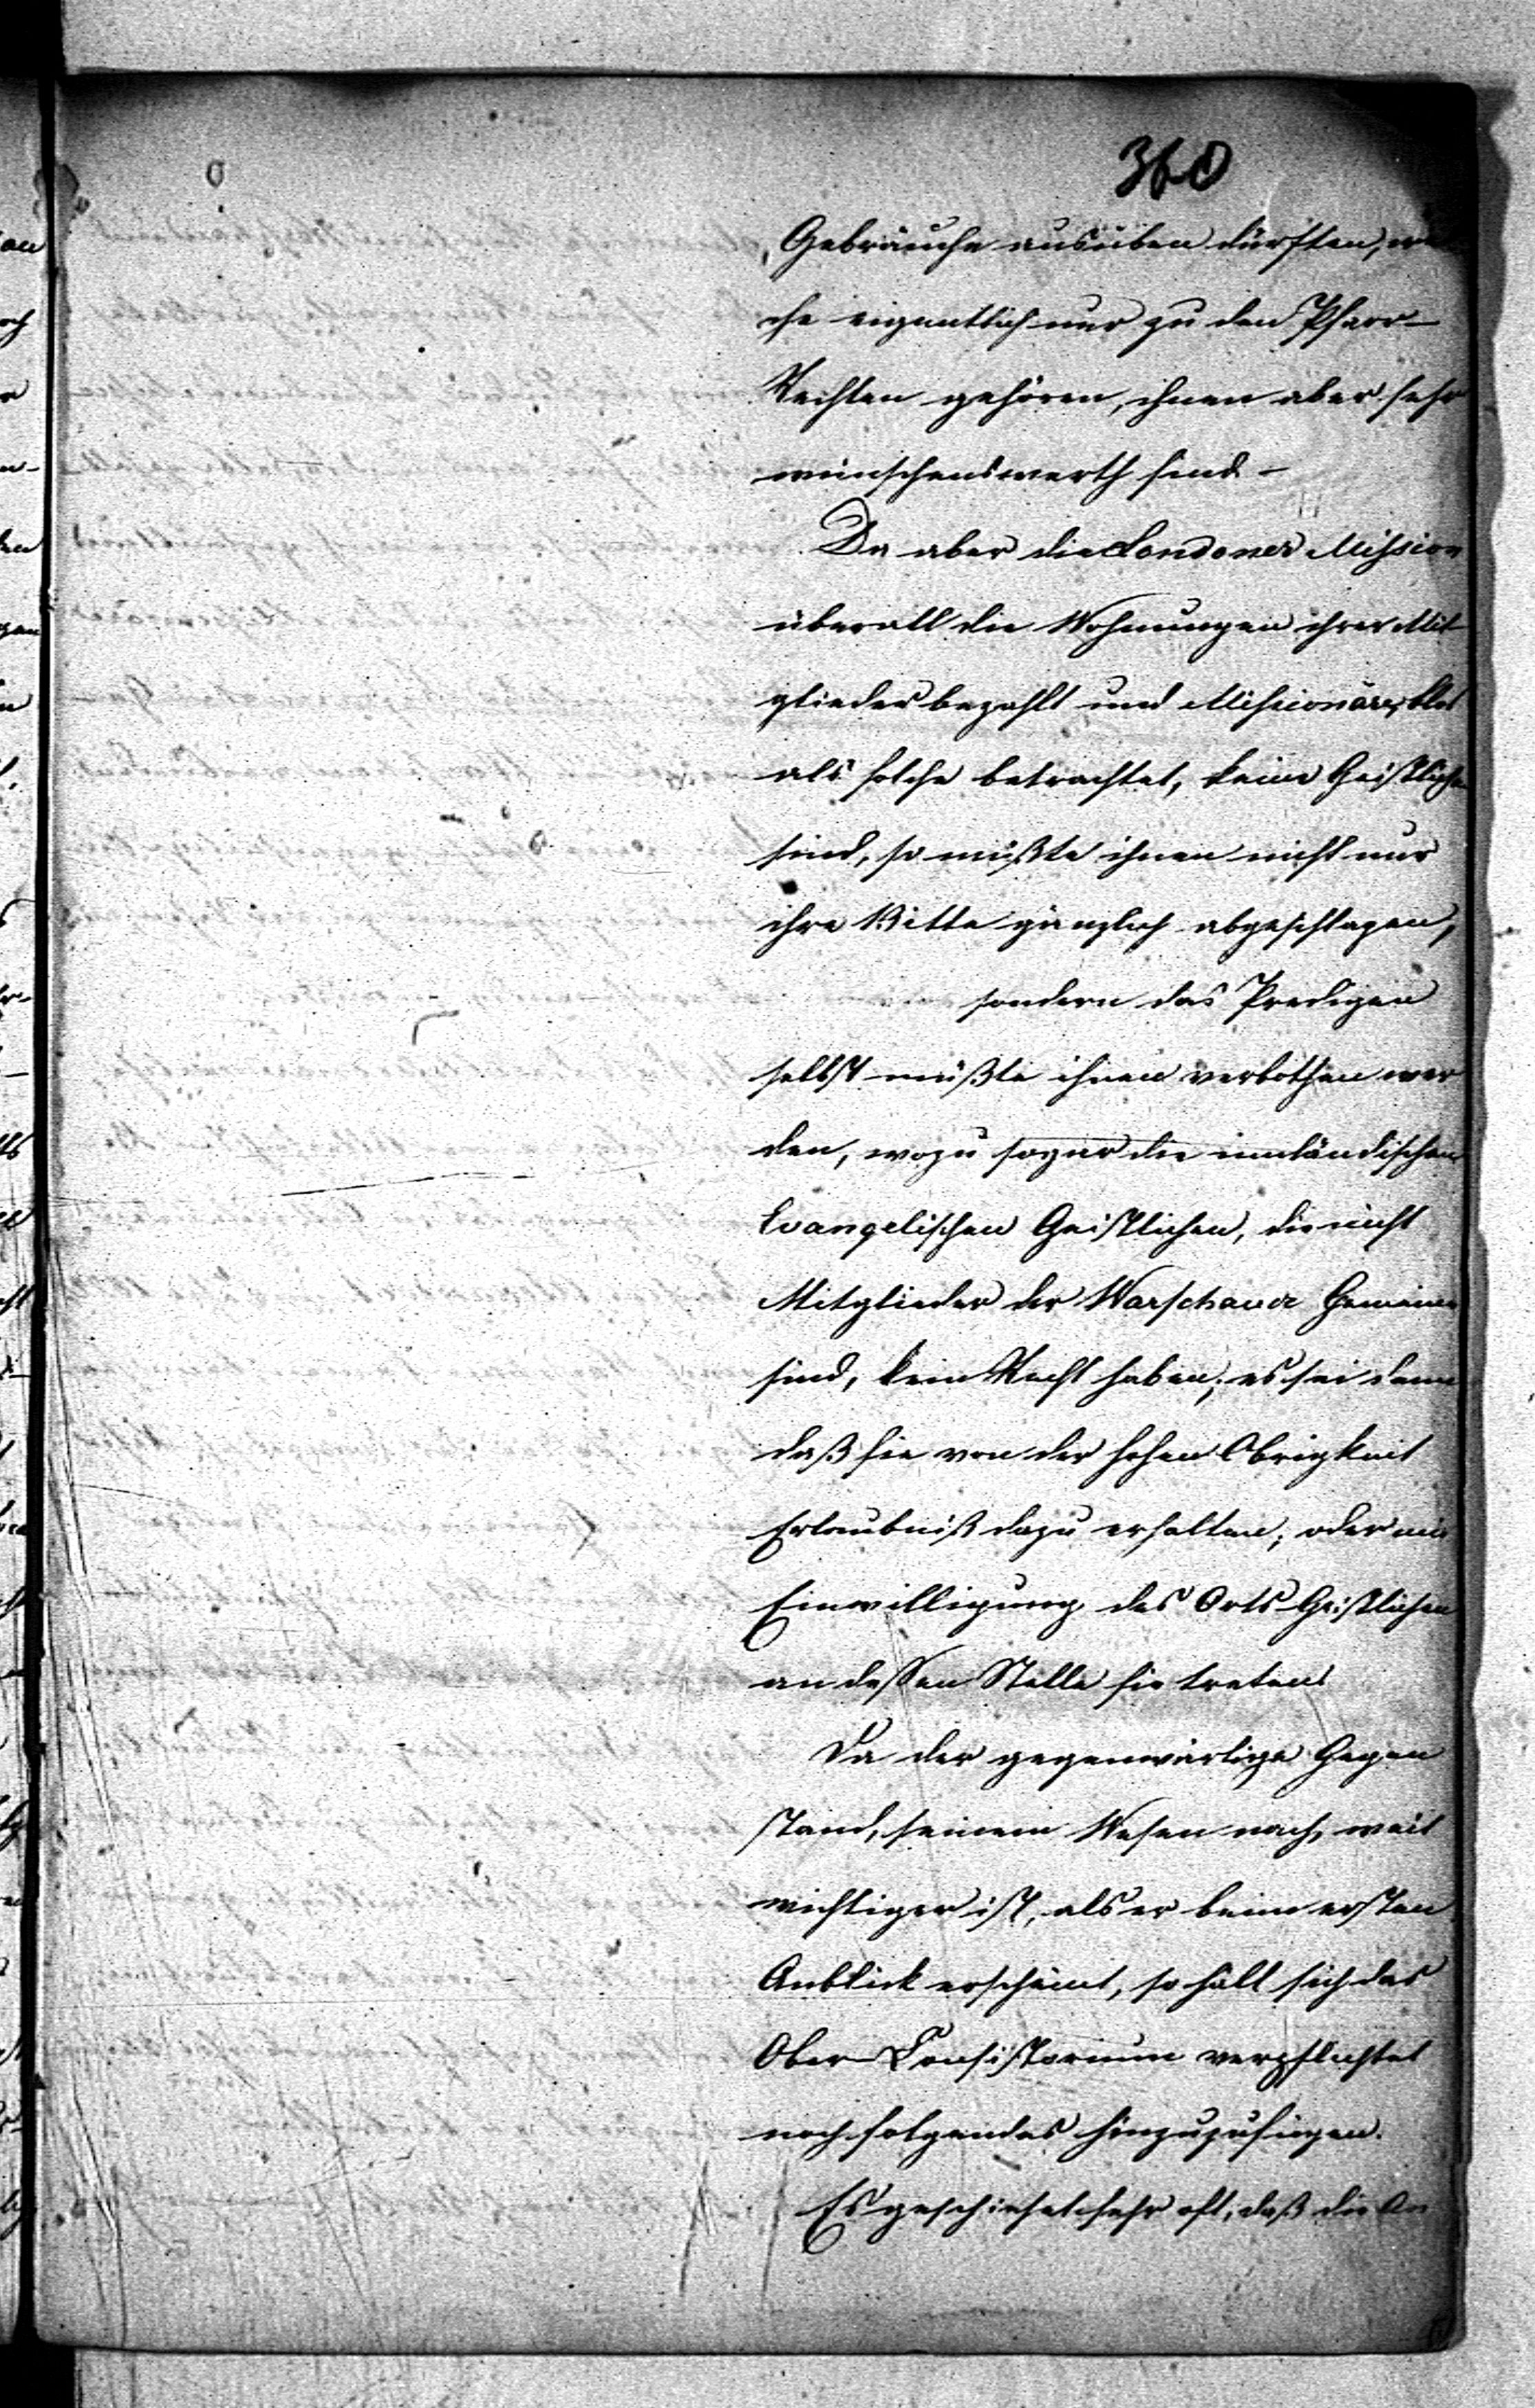 360
Gebräuche ausüben dürften, wel
che eigentlich nur zu den Pfarr-
Rechten gehören, ihnen aber sehr
wünschenswerth sind. -
Da aber die Londoner Mission
überall die Wohnungen ihrer Mit
glieder bezahlt und Missionäre, blos
als solche betrachtet, keine Geistliche
sind, so müßte ihnen nicht nur
ihre Bitte gänzlich abgeschlagen,
sondern das Predigen
selbst müßte ihnen verbothen wer
den, wozu sogar die inländischen
Evangelischen Geistlichen, die nicht
Mitglieder der Warschauer Gemeine
sind, kein Recht haben; es sei denn
daß sie von der hohen Obrigkeit
Erlaubniß dazu erhalten; oder mit
Einwilligung des Orts-Geistlichen
an dessen Stelle sie treten.
Da der gegenwärtige Gegen
stand, seinem Wesen nach, weit
wichtiger ist, als er beim ersten
Anblick erscheint, so hält sich das
Ober-Consistorium verpflichtet
noch folgendes hinzuzufügen.
Es geschiehet sehr oft, daß die An